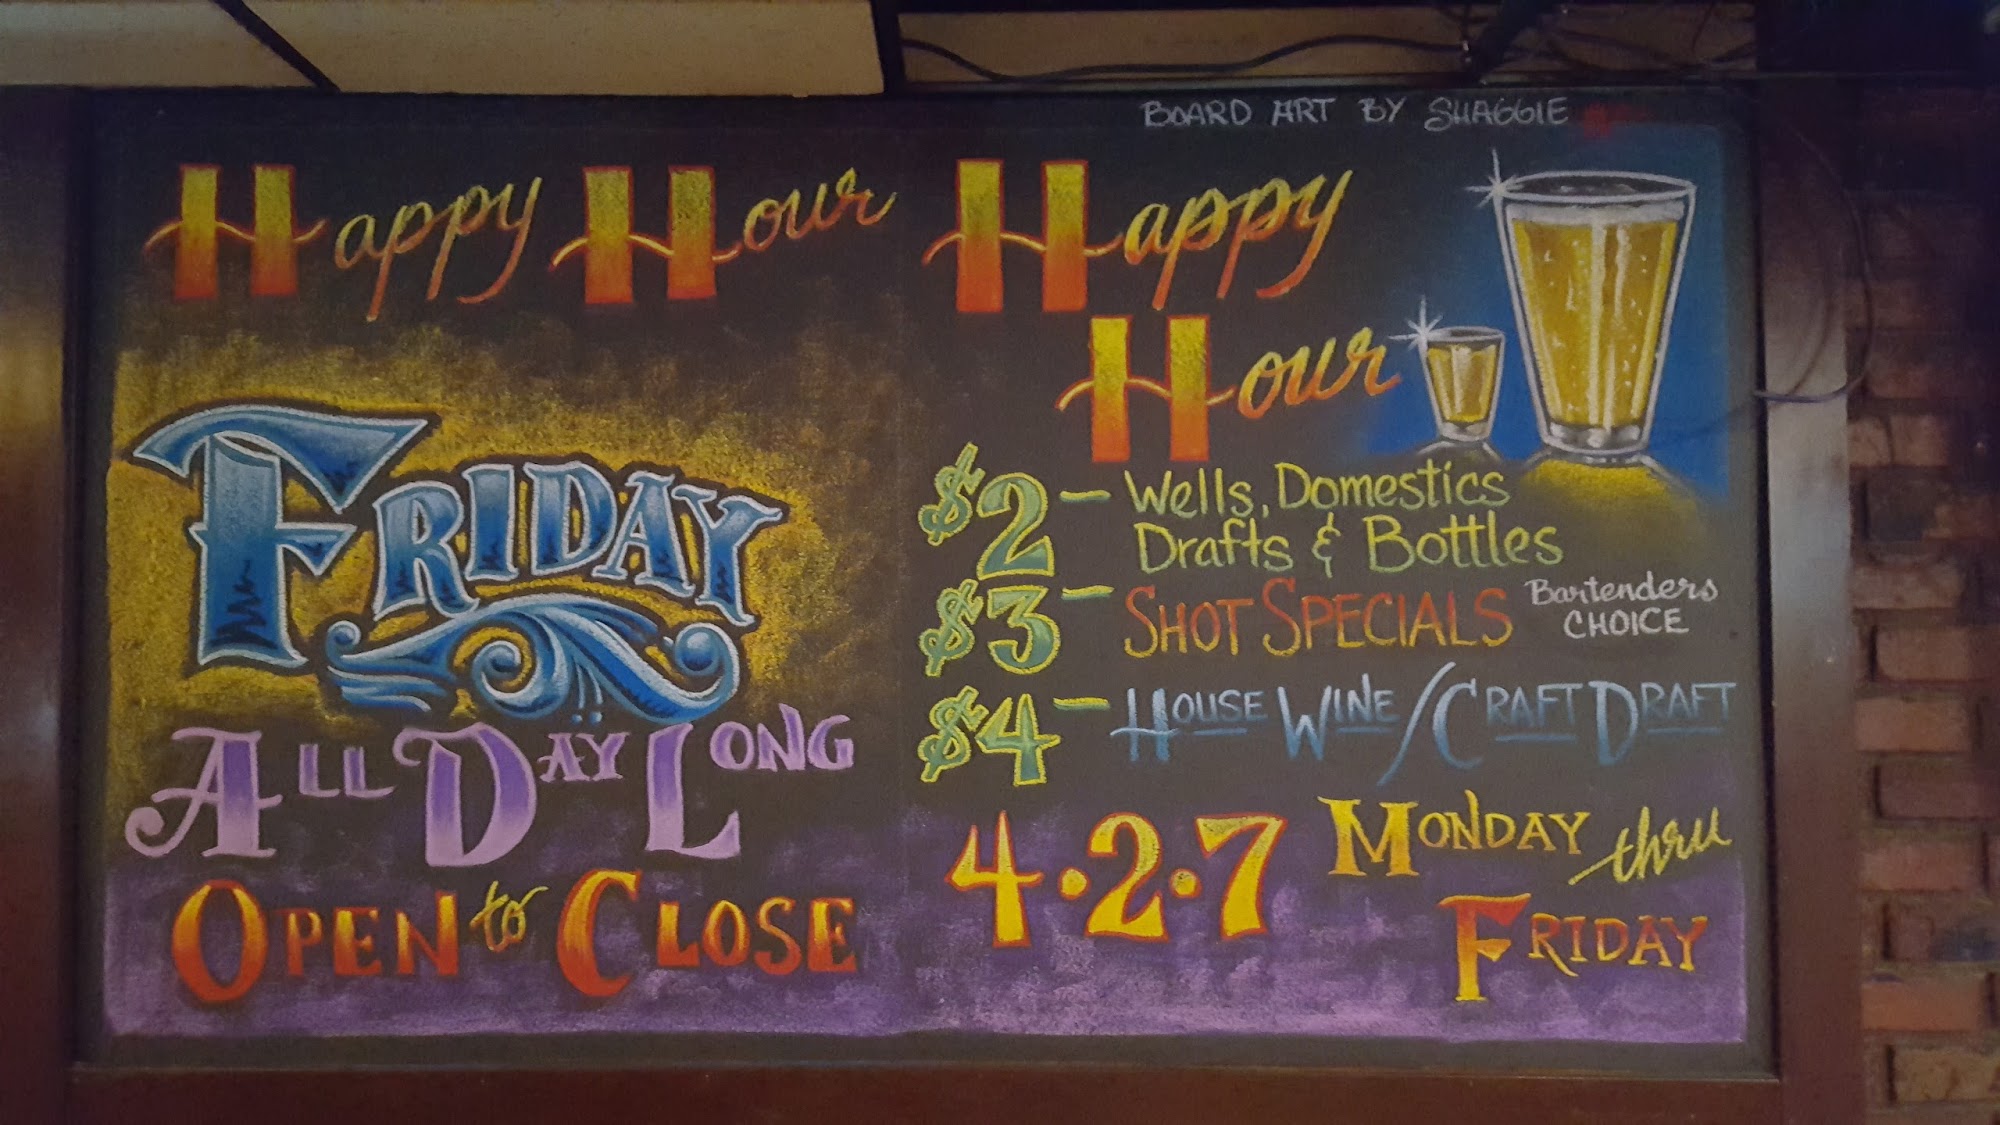 BOARD ART BY SHAGGIE
Happy Hour
FRIDAY
ALL DAY LONG
OPEN to CLOSE
Happy
Hour
$2 - Wells, Domestics
Drafts & Bottles
$3 - SHOT SPECIALS Bartenders
CHOICE
$4 - HOUSE WINE / CRAFT DRAFT
4·2·7 MONDAY thru
FRIDAY